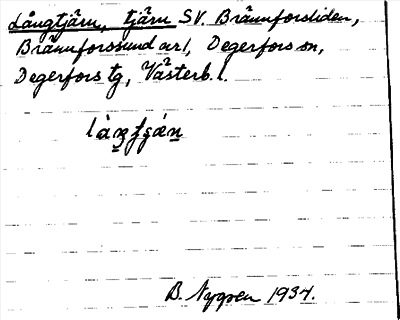 Långtjärn, tjärn SV. Brännforsliden,
Brännforssund arl, Degerfors sn,
Degerfors tg, Västerb. l.
B. Nygren 1934.